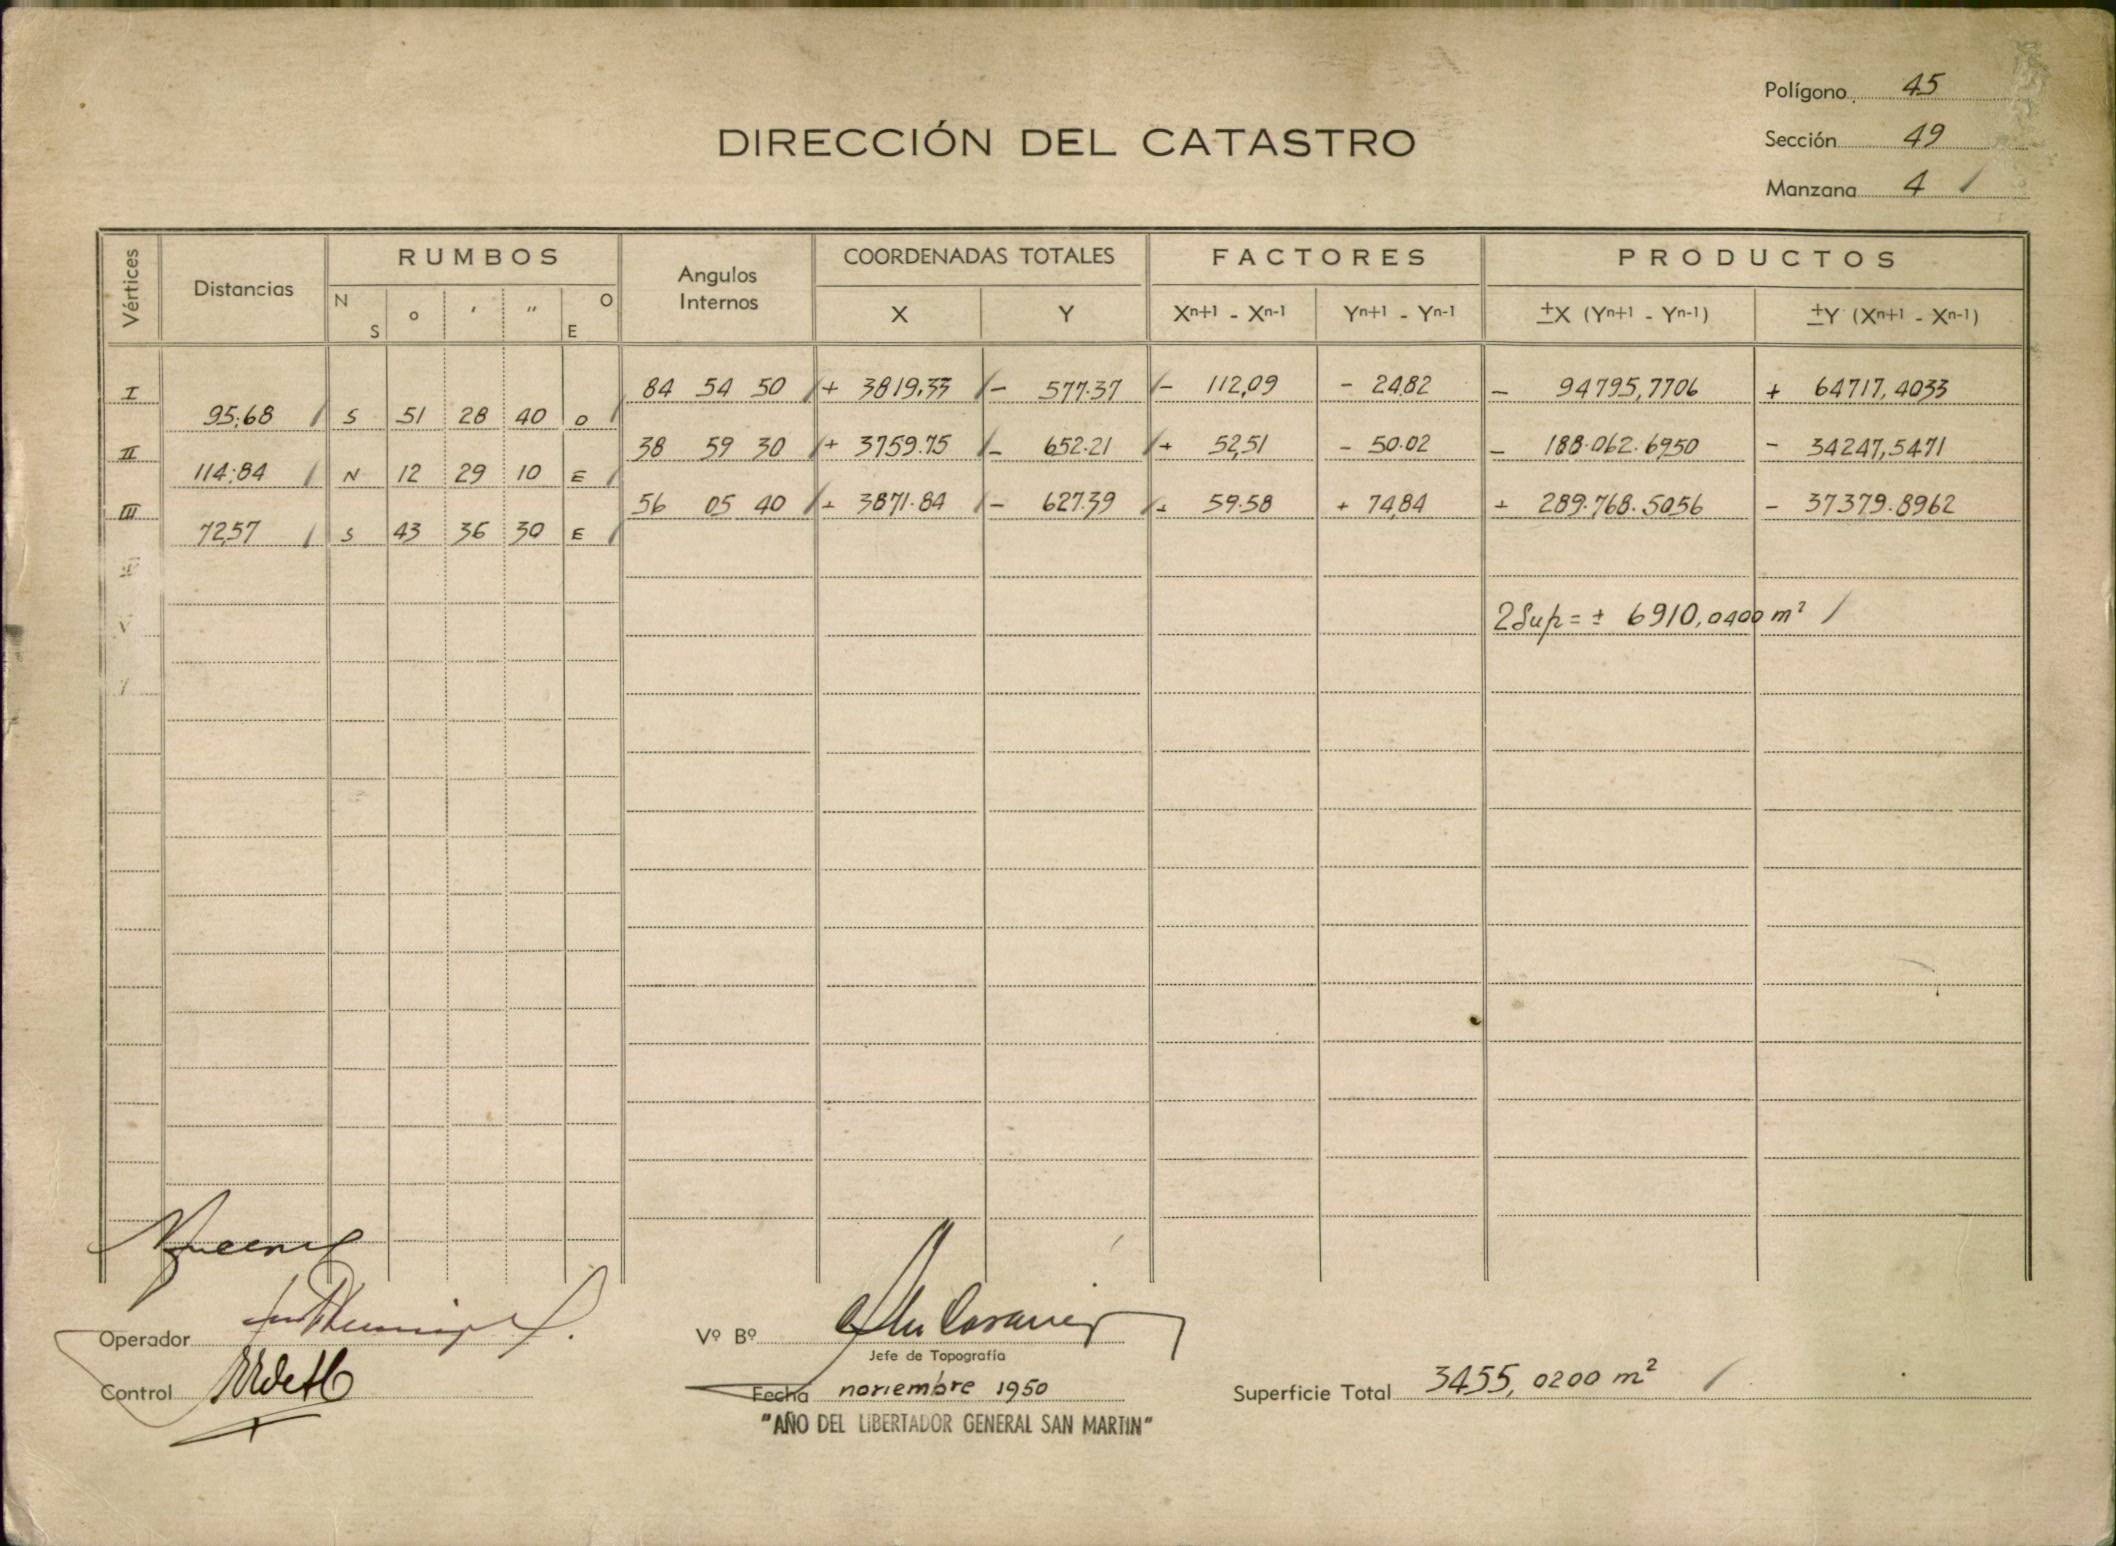 Polígono 45
DIRECCIÓN DEL CATASTRO
Sección 49
Manzana 4 /
Vértices Distancias RUMBOS Angulos Internos COORDENADAS TOTALES FACTORES PRODUCTOS
N S o ′ ″ O E X Y Xn+1 - Xn-1 Yn+1 - Yn-1 ±X (Yn+1 - Yn-1) ±Y (Xn+1 - Xn-1)
I 84 54 50 / + 3819,33 / - 577.37 / - 112,09 - 24,82 - 94795,7706 + 64717,4033
95,68 / S 51 28 40 O /
II 38 59 30 / + 3759.75 / - 652.21 / + 52,51 - 50.02 - 188.062.6950 - 34247,5471
114,84 / N 12 29 10 E /
III 56 05 40 / + 3871.84 / - 627.39 / + 59.58 + 74,84 + 289.768.5056 - 37379.8962
72,57 / S 43 36 30 E /
V
2Sup = ± 6910,0400 m² /
Operador
Vº Bº
Jefe de Topografía
Control
Fecha noviembre 1950
Superficie Total 3455,0200 m² /
"AÑO DEL LIBERTADOR GENERAL SAN MARTIN"